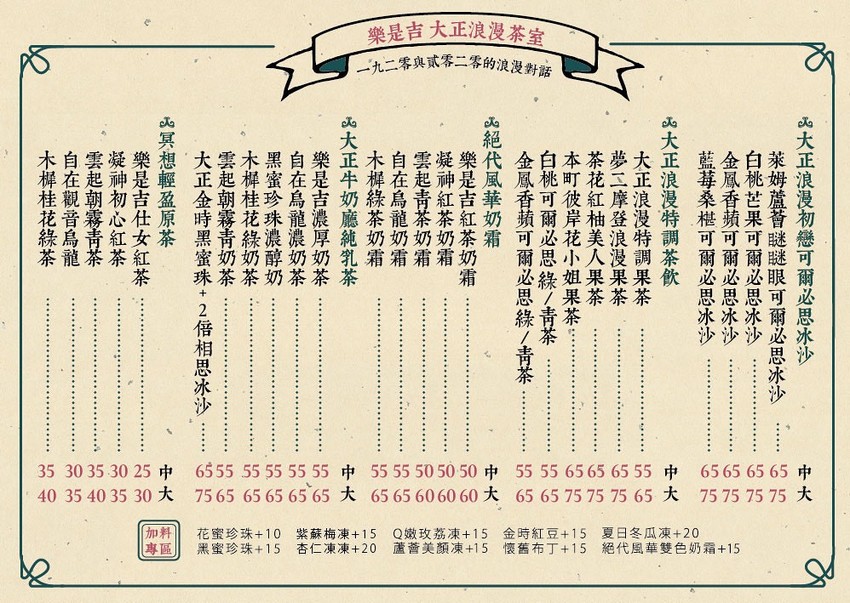 樂是吉 大正浪漫茶室
一九二零與貳零二零的浪漫對話
大正浪漫初戀可爾必思冰沙 中 大
萊姆蘆薈瞇瞇眼可爾必思冰沙 65 75
白桃芒果可爾必思冰沙 65 75
金鳳香蘋可爾必思冰沙 65 75
藍莓桑椹可爾必思冰沙 65 75
大正浪漫特調茶飲 中 大
大正浪漫特調果茶 55 65
夢二摩登浪漫果茶 65 75
茶花紅柚美人果茶 65 75
本町彼岸花小姐果茶 65 75
白桃可爾必思綠/青茶 55 65
金鳳香蘋可爾必思綠/青茶 55 65
絕代風華奶霜 中 大
樂是吉紅茶奶霜 50 60
凝神紅茶奶霜 50 60
雲起青茶奶霜 50 60
自在烏龍奶霜 55 65
木樨綠茶奶霜 55 65
大正牛奶廳純乳茶 中 大
樂是吉濃厚奶茶 55 65
自在烏龍濃奶茶 55 65
黑蜜珍珠濃醇奶 55 65
木樨桂花綠奶茶 55 65
雲起朝霧青奶茶 55 65
大正金時黑蜜珠+2倍相思冰沙 65 75
冥想輕盈原茶 中 大
樂是吉仕女紅茶 25 30
凝神初心紅茶 30 35
雲起朝霧青茶 35 40
自在觀音烏龍 30 35
木樨桂花綠茶 35 40
加料專區
花蜜珍珠+10 紫蘇梅凍+15 Q嫩玫荔凍+15 金時紅豆+15 夏日冬瓜凍+20
黑蜜珍珠+15 杏仁凍凍+20 蘆薈美顏凍+15 懷舊布丁+15 絕代風華雙色奶霜+15